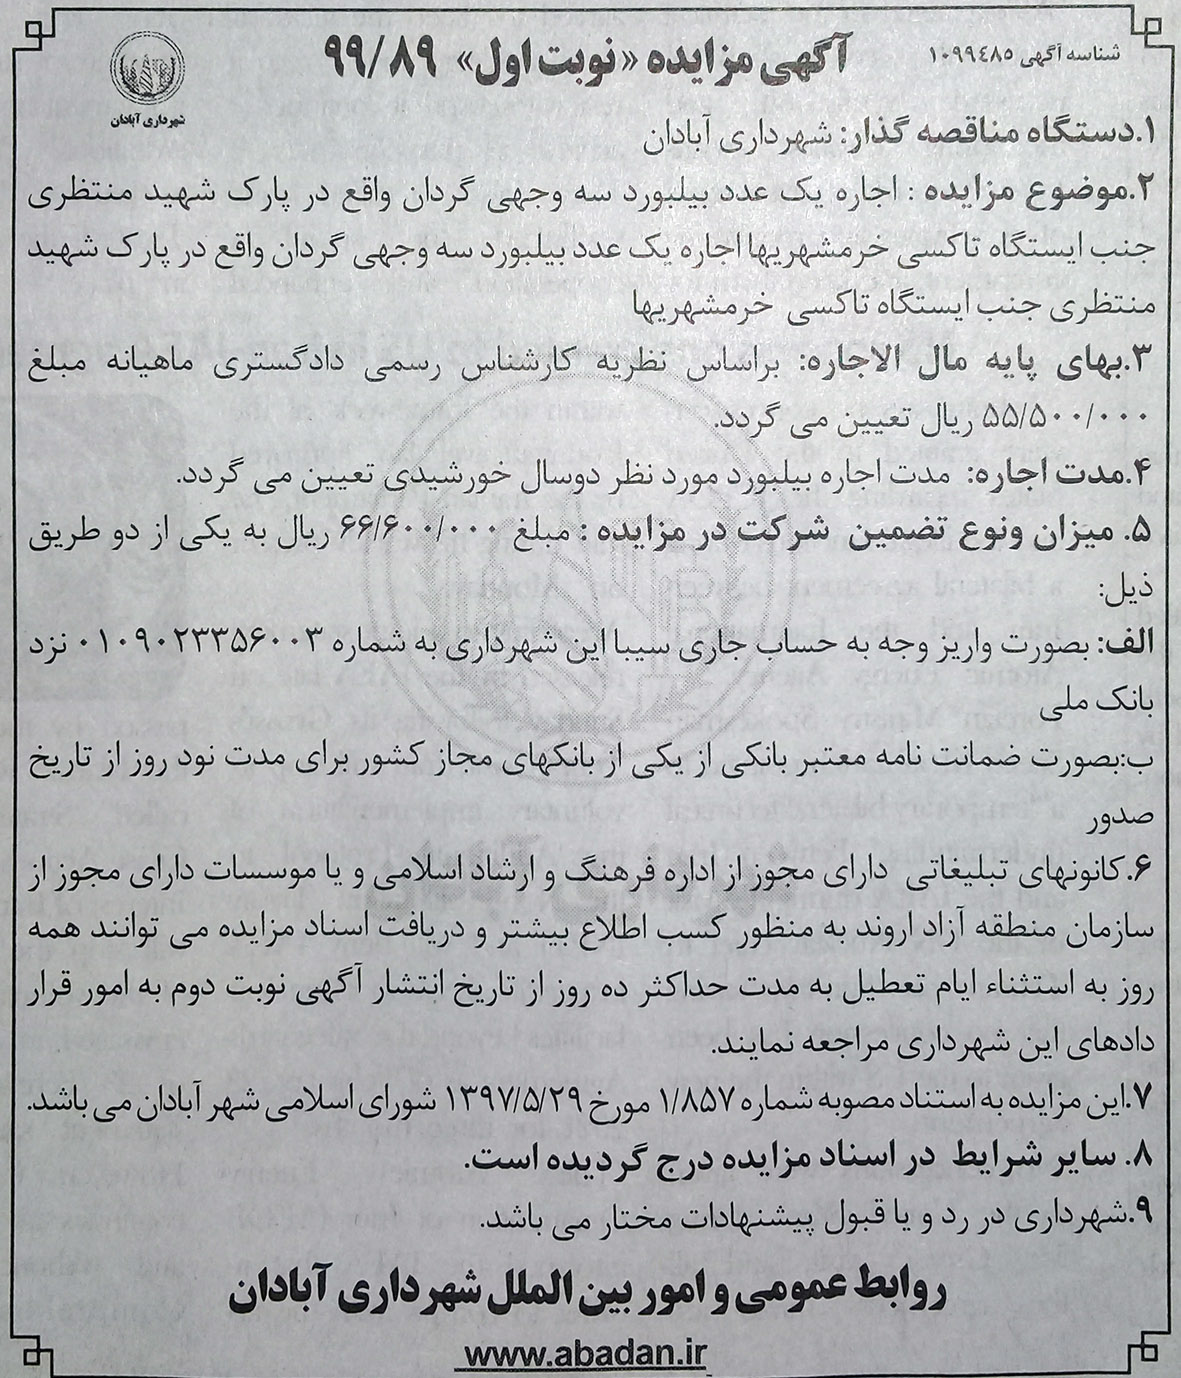 شناسه آگهی ۱۰۹۹٤۸۵
آگهی مزایده «نوبت اول» ۹۹/۸۹
شهرداری آبادان
۱.دستگاه مناقصه گذار: شهرداری آبادان
۲.موضوع مزایده : اجاره یک عدد بیلبورد سه وجهی گردان واقع در پارک شهید منتظری
جنب ایستگاه تاکسی خرمشهریها اجاره یک عدد بیلبورد سه وجهی گردان واقع در پارک شهید
منتظری جنب ایستگاه تاکسی خرمشهریها
۳.بهای پایه مال الاجاره: براساس نظریه کارشناس رسمی دادگستری ماهیانه مبلغ
۵۵/۵۰۰/۰۰۰ ریال تعیین می گردد.
۴.مدت اجاره: مدت اجاره بیلبورد مورد نظر دوسال خورشیدی تعیین می گردد.
۵. میزان ونوع تضمین شرکت در مزایده : مبلغ ۶۶/۶۰۰/۰۰۰ ریال به یکی از دو طریق
ذیل:
الف: بصورت واریز وجه به حساب جاری سیبا این شهرداری به شماره ۰۱۰۹۰۲۳۳۵۶۰۰۳ نزد
بانک ملی
ب:بصورت ضمانت نامه معتبر بانکی از یکی از بانکهای مجاز کشور برای مدت نود روز از تاریخ
صدور
۶.کانونهای تبلیغاتی دارای مجوز از اداره فرهنگ و ارشاد اسلامی و یا موسسات دارای مجوز از
سازمان منطقه آزاد اروند به منظور کسب اطلاع بیشتر و دریافت اسناد مزایده می توانند همه
روز به استثناء ایام تعطیل به مدت حداکثر ده روز از تاریخ انتشار آگهی نوبت دوم به امور قرار
دادهای این شهرداری مراجعه نمایند.
۷.این مزایده به استناد مصوبه شماره ۱/۸۵۷ مورخ ۱۳۹۷/۵/۲۹ شورای اسلامی شهر آبادان می باشد.
۸. سایر شرایط در اسناد مزایده درج گردیده است.
۹.شهرداری در رد و یا قبول پیشنهادات مختار می باشد.
روابط عمومی و امور بین الملل شهرداری آبادان
www.abadan.ir